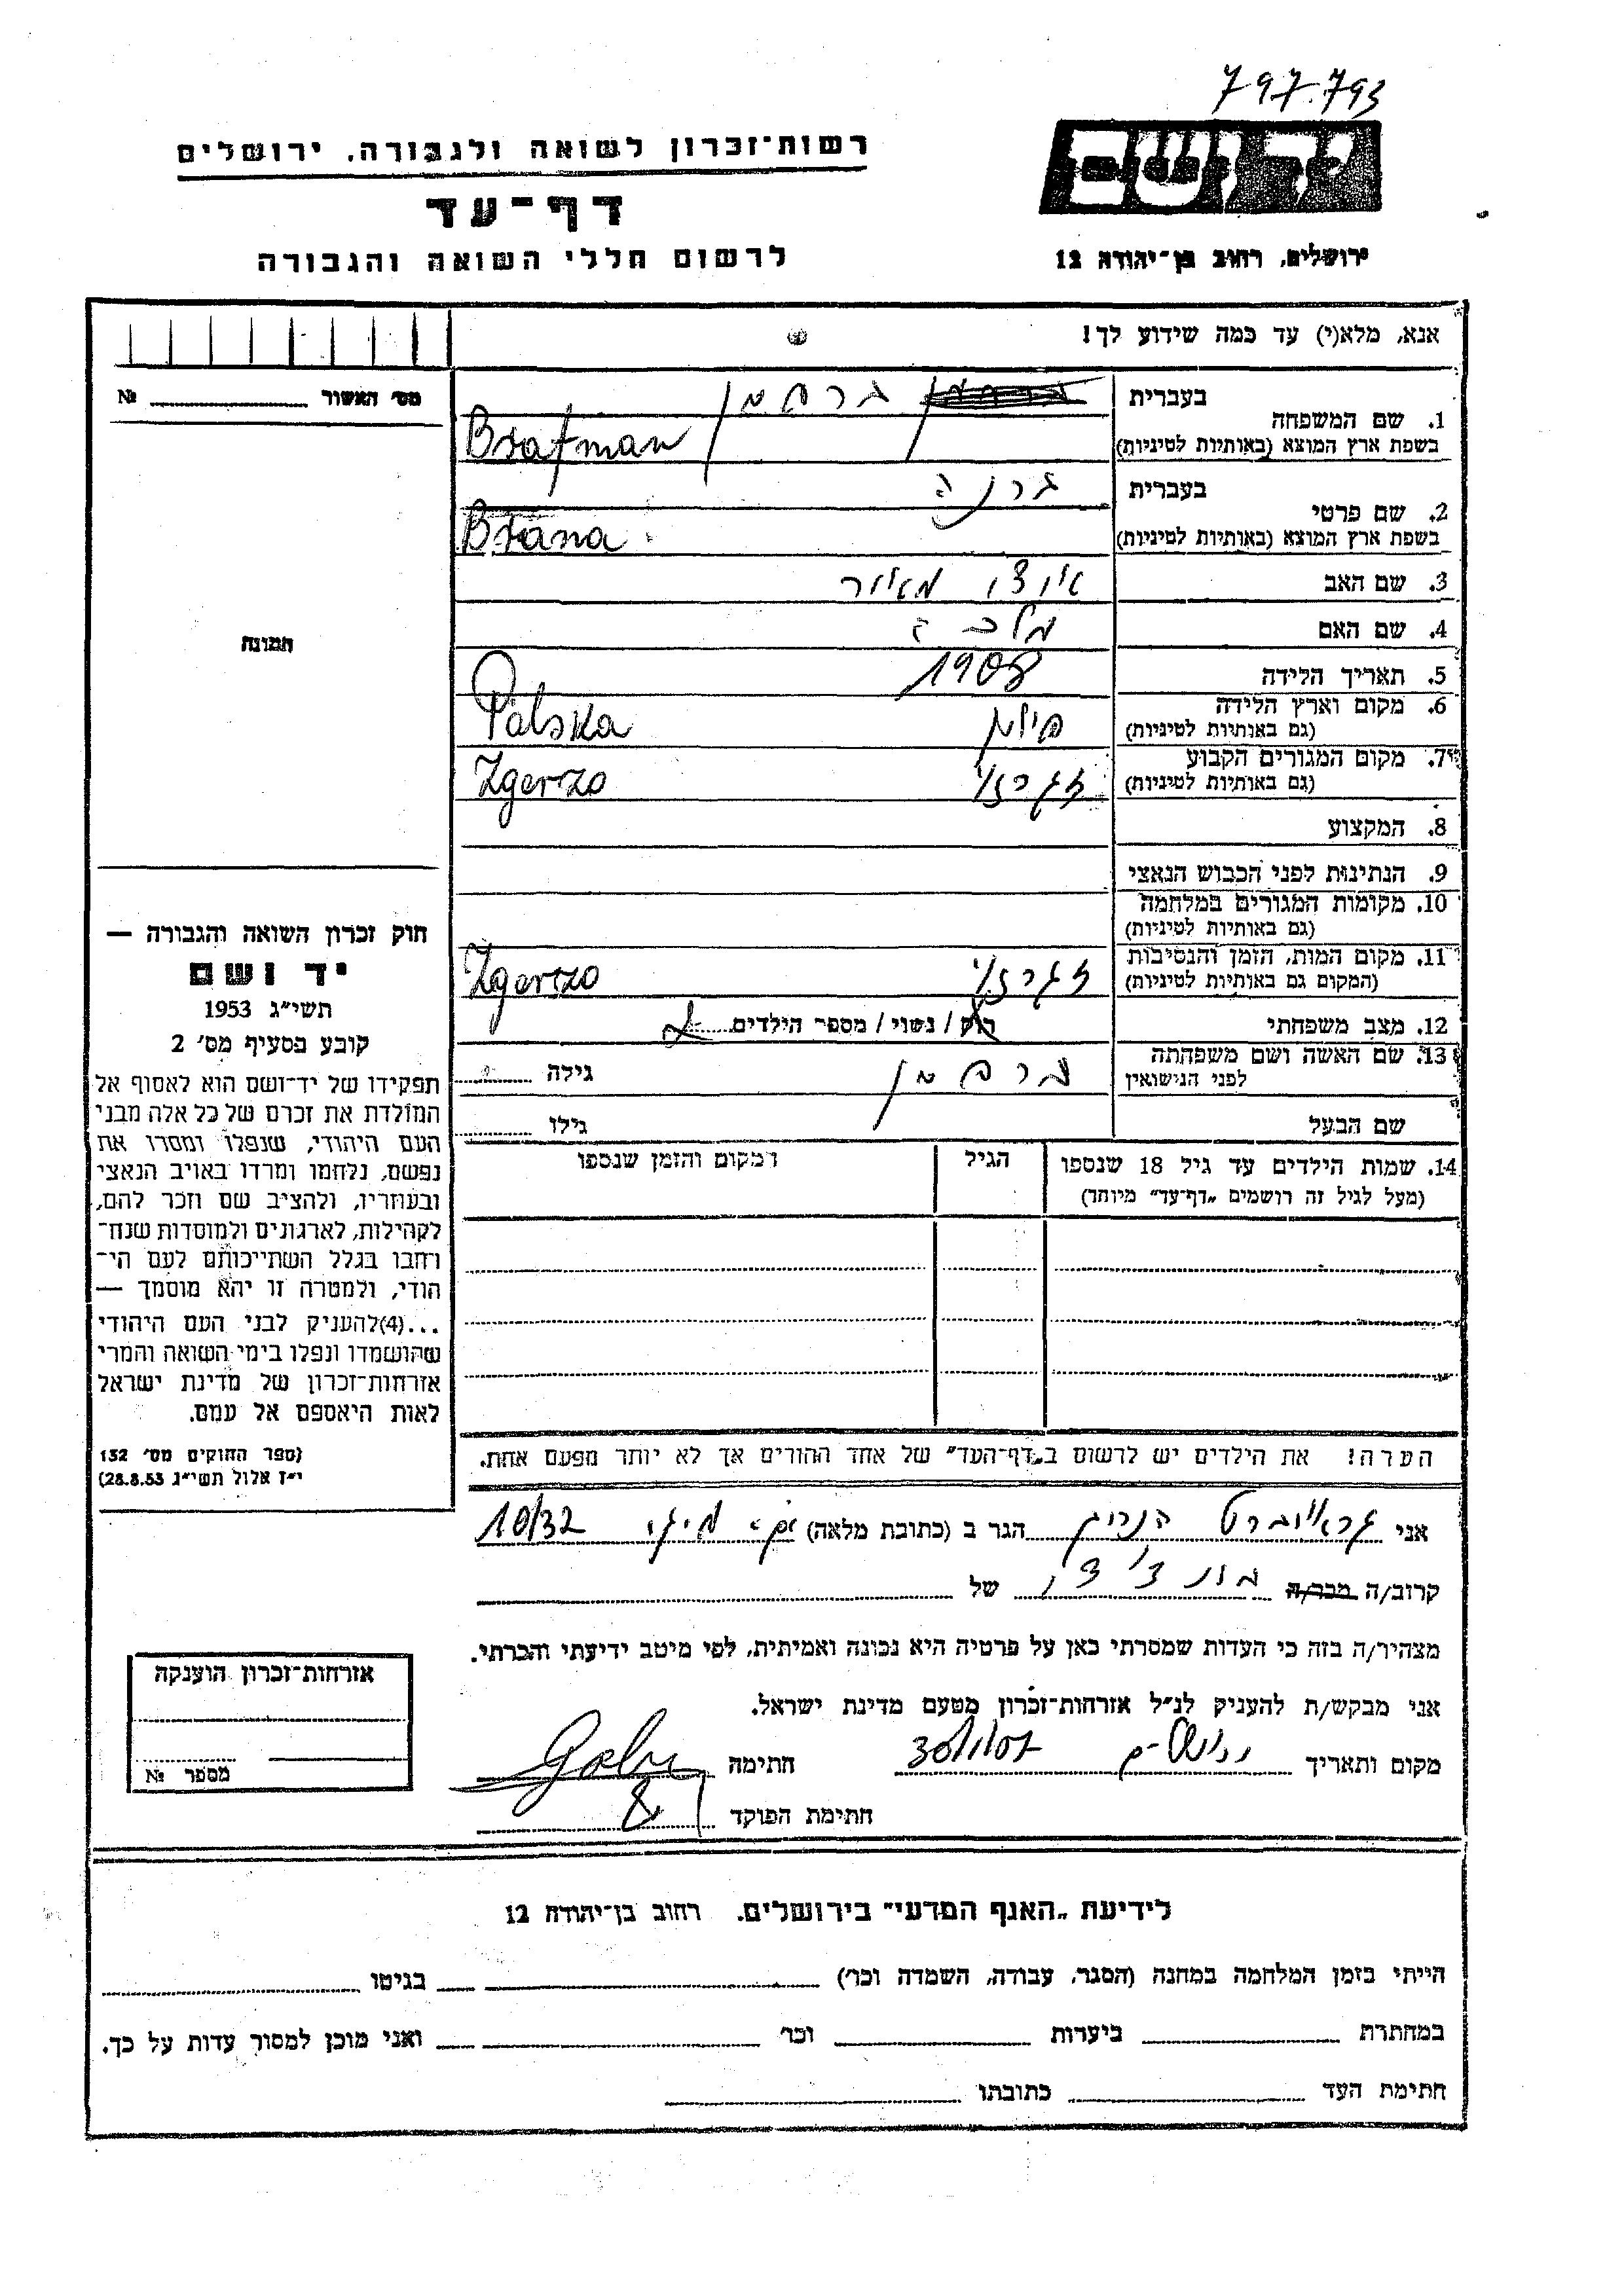 797.793
יד ושם
רשות־זכרון לשואה ולגבורה, ירושלים
דף־עד
לרשום חללי השואה והגבורה
ירושלים, רחוב בן־יהודה 12
אנא, מלא(י) עד כמה שידוע לך!
מס׳ האשור № 
1. שם המשפחה
בעברית ברפמן
בשפת ארץ המוצא (באותיות לטיניות) Brafman
2. שם פרטי
בעברית ברנה
בשפת ארץ המוצא (באותיות לטיניות) Brana
3. שם האב מאיר
4. שם האם מלכה
5. תאריך הלידה 1908
6. מקום וארץ הלידה פולין Polska
(גם באותיות לטיניות)
7. מקום המגורים הקבוע Zgerzo
(גם באותיות לטיניות)
8. המקצוע
9. הנתינות לפני הכבוש הנאצי
10. מקומות המגורים במלחמה
(גם באותיות לטיניות)
11. מקום המות, הזמן והנסיבות Zgerzo
(המקום גם באותיות לטיניות)
12. מצב משפחתי רוק / נשוי / מספר הילדים
13. שם האשה ושם משפחתה ברפמן גילה
לפני הנישואין
שם הבעל גילו
14. שמות הילדים עד גיל 18 שנספו הגיל המקום והזמן שנספו
(מעל לגיל זה רושמים „דף־עד” מיוחד)
הערה! את הילדים יש לרשום ב„דף־העד” של אחד ההורים אך לא יותר מפעם אחת.
תמונה
חוק זכרון השואה והגבורה —
יד ושם
תשי״ג 1953
קובע בסעיף מס׳ 2
תפקידו של יד־ושם הוא לאסוף אל
המולדת את זכרם של כל אלה מבני
העם היהודי, שנפלו ומסרו את
נפשם, נלחמו ומרדו באויב הנאצי
ובעוזריו, ולהציב שם וזכר להם,
לקהילות, לארגונים ולמוסדות שנח־
רבו בגלל השתייכותם לעם הי־
הודי, ולמטרה זו יהא מוסמך —
...(4)להעניק לבני העם היהודי
שהושמדו ונפלו בימי השואה והמרי
אזרחות־זכרון של מדינת ישראל
לאות היאספם אל עמם.
(ספר החוקים מס׳ 132
י״ז אלול תשי״ג 28.8.53)
אני הגר ב (כתובת מלאה) 10/32
קרוב/ה מכר/ה של
מצהיר/ה בזה כי העדות שמסרתי כאן על פרטיה היא נכונה ואמיתית, לפי מיטב ידיעתי והכרתי.
אני מבקש/ת להעניק לנ״ל אזרחות־זכרון מטעם מדינת ישראל.
מקום ותאריך חתימה
חתימת הפוקד
אזרחות־זכרון הוענקה
מספר №
לידיעת „האגף המדעי” בירושלים, רחוב בן־יהודה 12
הייתי בזמן המלחמה במחנה (הסגר, עבודה, השמדה וכו׳) בגיטו
במחתרת ביערות וכו׳ ואני מוכן למסור עדות על כך.
חתימת העד כתובתו